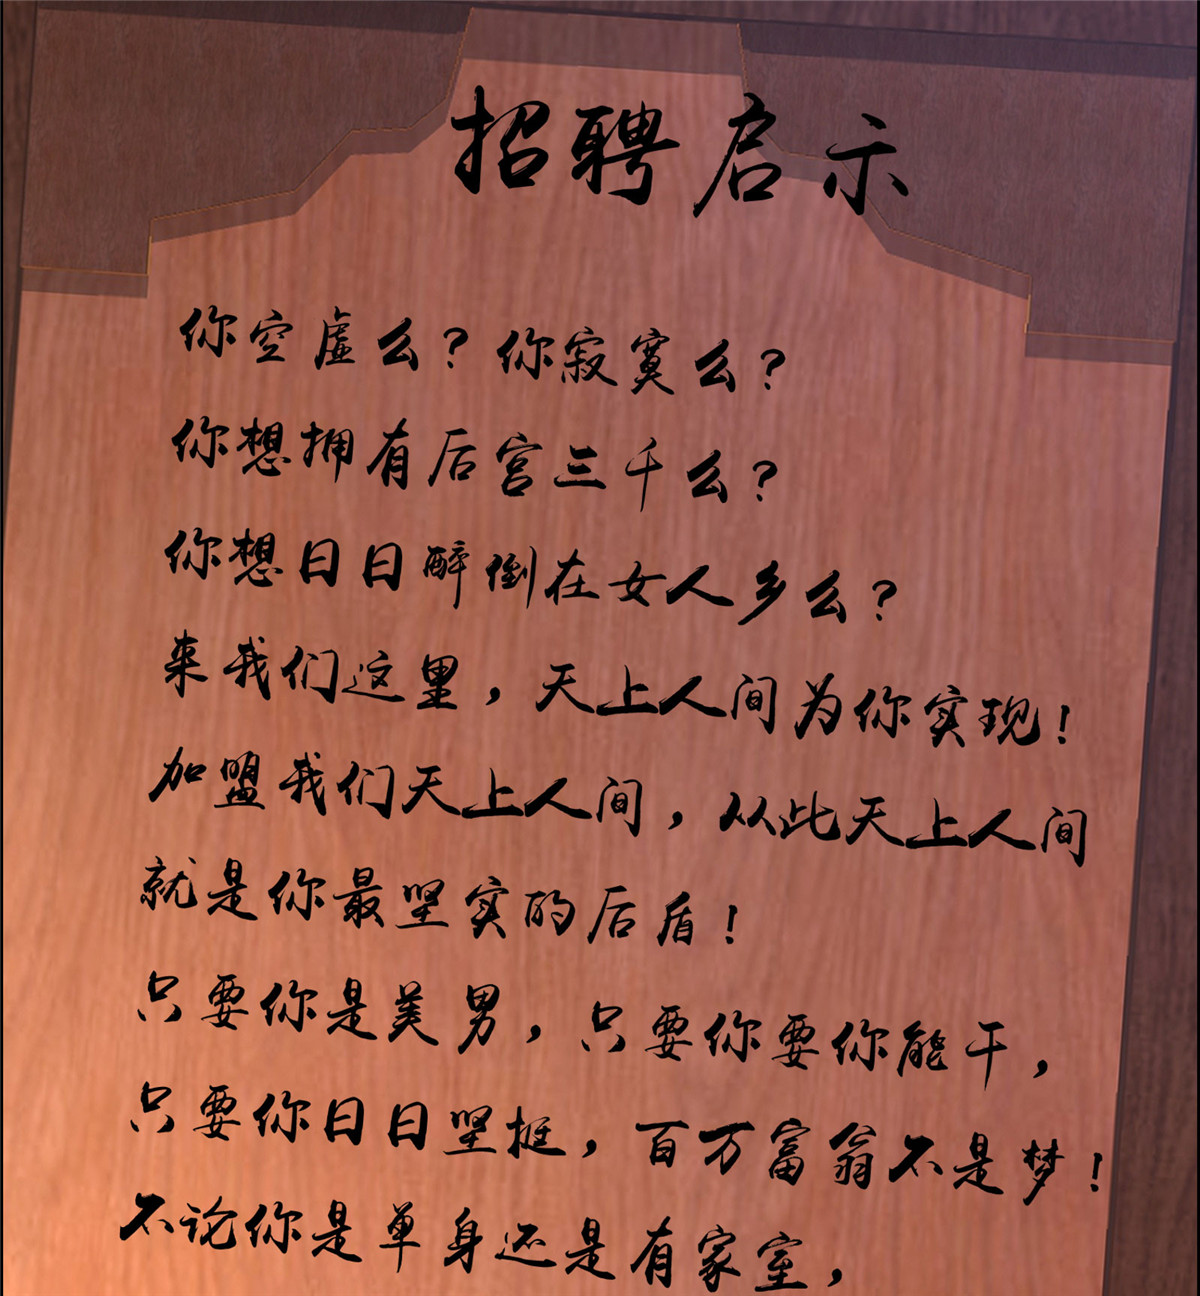 招聘启示
你空虚么？你寂寞么？
你想拥有后宫三千么？
你想日日醉倒在女人乡么？
来我们这里，天上人间为你实现！
加盟我们天上人间，从此天上人间
就是你最坚实的后盾！
只要你是美男，只要你要你能干，
只要你日日坚挺，百万富翁不是梦！
不论你是单身还是有家室，